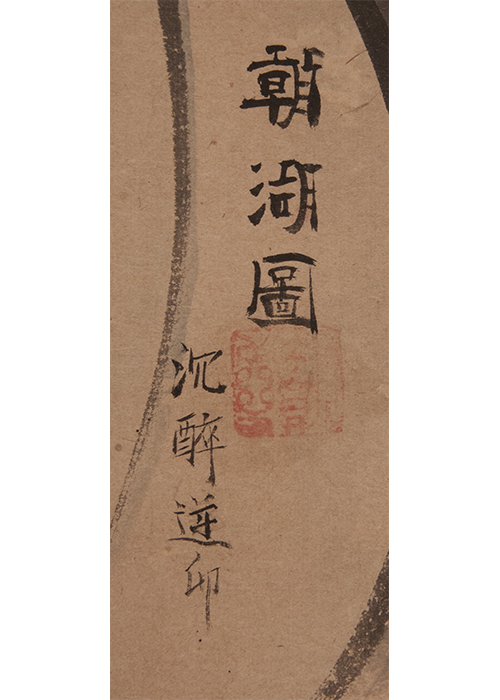 朝湖圖
沉醉逆卯